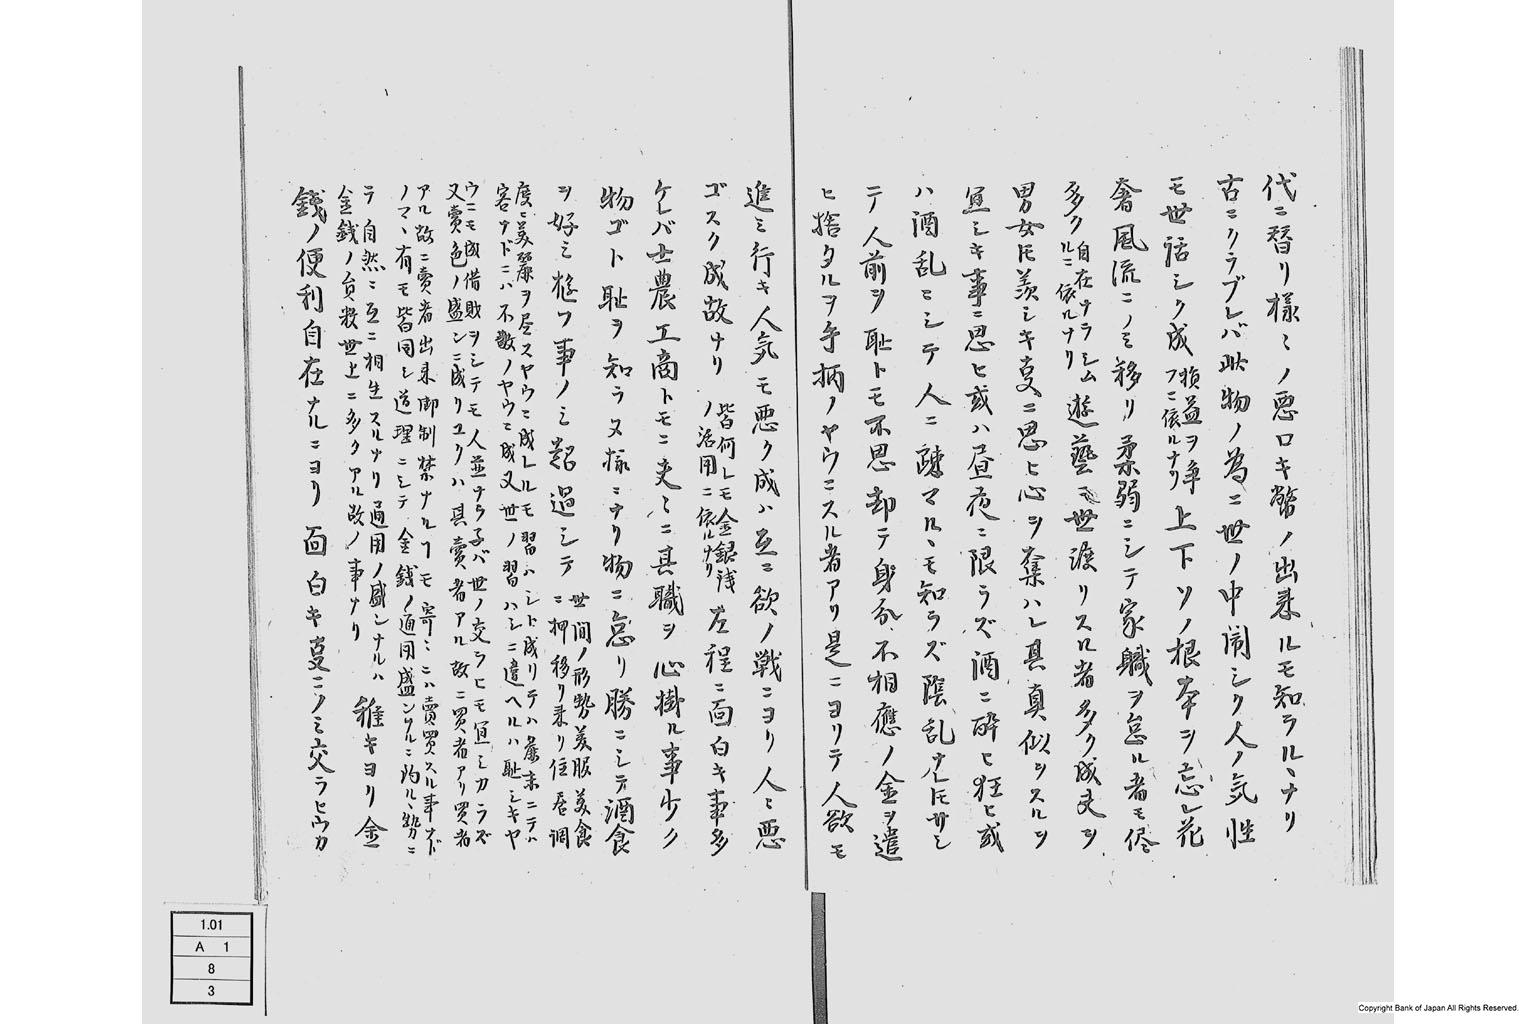 代ニ替リ様ミノ悪ロキ幣ノ出来ルモ知ラルヽナリ
古ニクラブレバ此物ノ為ニ世ノ中閙シク人ノ気性
モ世話シク成 損益ヲ争フニ依ルナリ 上下ソノ根本ヲ忘レ花
奢風流ニノミ移リ柔弱ニシテ家職ヲ怠ル者モ
多ク 自在ナラシムルニ依ルナリ 遊藝ニ世渡リスル者多ク成又ヲ
男女ヒ羨シキ事ニ思ヒ心ヲ奪ハレ其真似ヲスルヲ
宜シキ事ニ思ヒ或ハ昼夜ニ限ラズ酒ニ酔ヒ狂ヒ或
ハ酒乱ニシテ人ニ疎マルヽモ知ラズ陰乱
テ人前ヲ恥トモ不思却テ身分不相應ノ金ヲ遣
ヒ捨タルヲ手柄ノヤウニスル者アリ是ニヨリテ人欲モ
進ミ行キ人気モ悪ク成ハ互ニ欲ノ戦ニヨリ人ミ悪
ゴスク成故ナリ 皆何レモ金銀浅ノ活用ニ依ルナリ 左程ニ面白キ事多
ケレバ士農工商トモニ其職ヲ心掛ル事少ク
物ゴト恥ヲ知ラヌ様ニナリ物ニ怠リ勝ニシテ酒食
ヲ好ミ遊フ事ノミ超過シテ 世間ノ形勢美服美食
ニ押移リ来リ住居調
度ニ美麗ヲ尽スヤウニ成レルモ習ハシト成リテハ麁末ニテハ
客ナドニハ不敬ノヤウニ成又世ノ習ハシニ違ヘルハ恥シキヤ
ウニモ成借財ヲシテモ人並ナラ子バ世ノ交ラヒモ宜シカラズ
又賣色ノ盛ンニ成リユクハ其賣者アル故ニ買者アリ買者
アル故ニ賣者出来御制禁ナルヿモ寄ミニハ賣買スル事ナド
ノマヽ有モ皆同シ道理ニシテ金銭ノ通用盛ンナルニ
テ自然ニ互ニ相生スルナリ通用ノ盛ンナルハ
金銭ノ員数世上ニ多クアル故ノ事ナリ 稚キヨリ金
錢ノ便利自在ナルニヨリ面白キ事ニノミ交ラヒウカ
1.01
A 1
8
3
Copyright Bank of Japan All Rights Reserved.